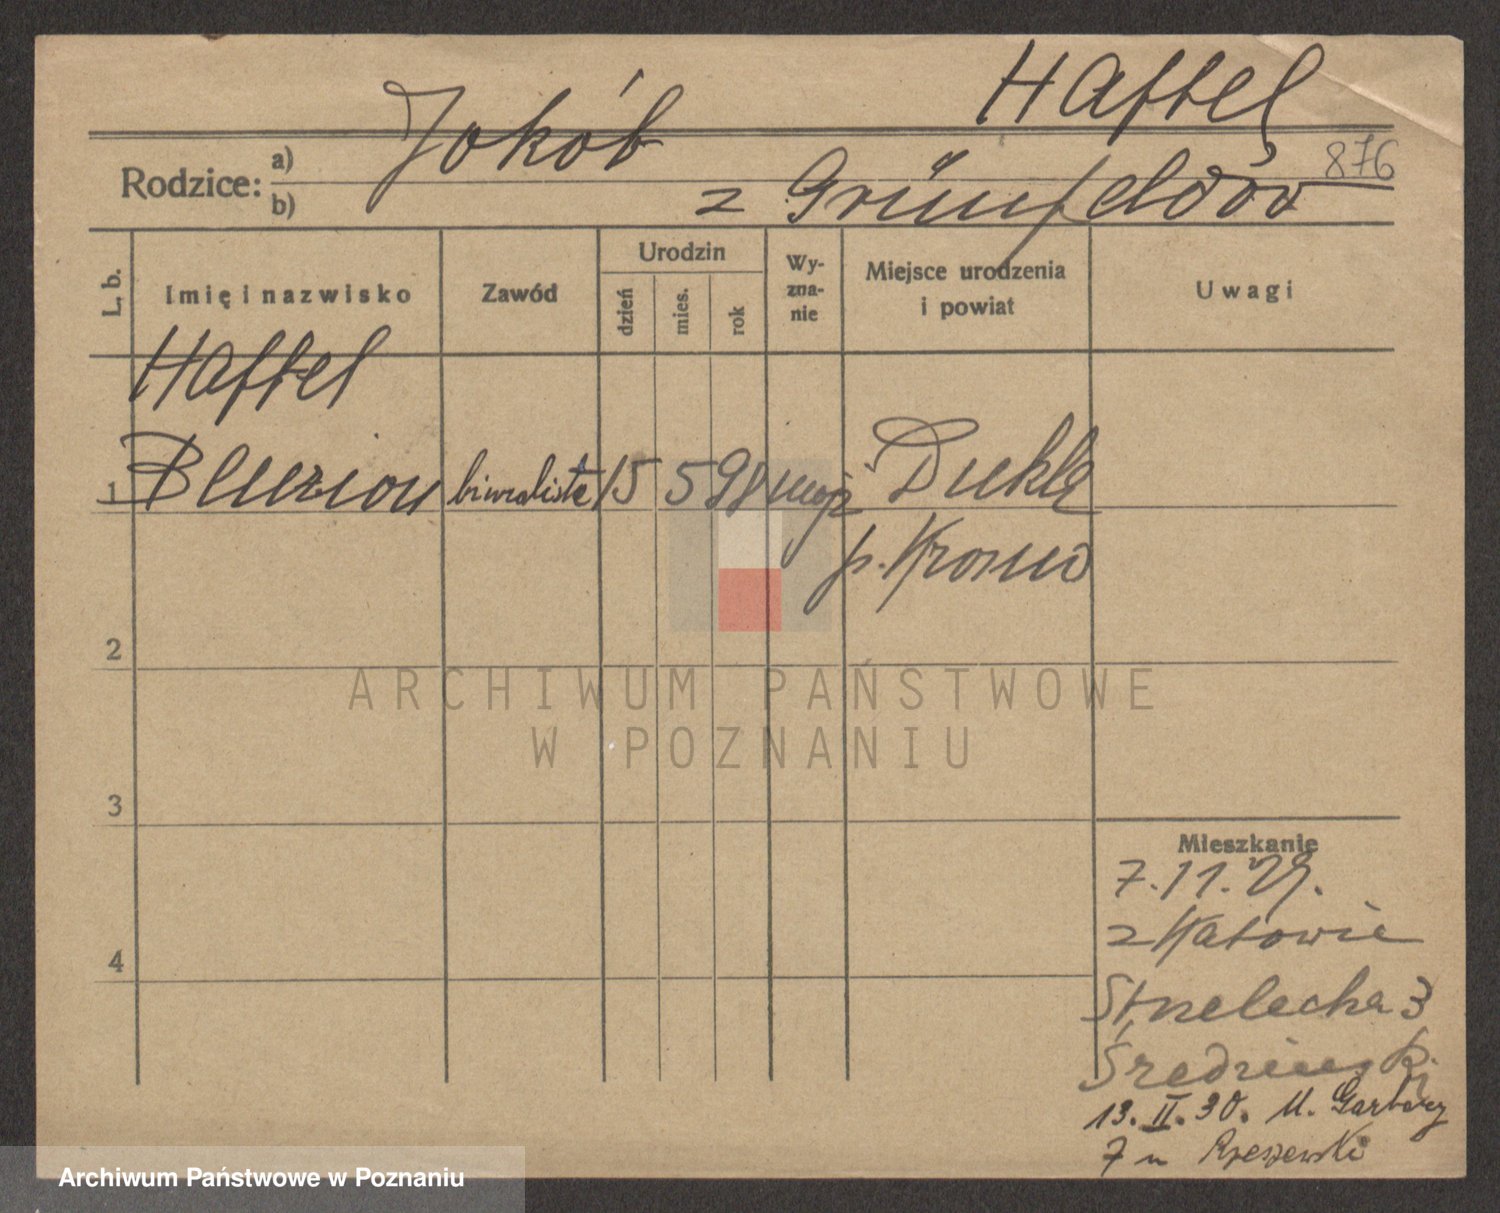 Haftel
Jakób
876
Rodzice: a)
b) z Grünfeldów
L. b.
Imię i nazwisko
Zawód
Urodzin
dzień
mies.
rok
Wy-
zna-
nie
Miejsce urodzenia
i powiat
Uwagi
Haftel
1 biuralista 15 5 98 mojż Dukla
p. Krosno
2
ARCHIWUM PAŃSTWOWE
W POZNANIU
3
Mieszkanie
7.11.29.
z Katowic
4
Strzelecka 3
Średzinski
13. II. 30. M. Garbary
7 u Rzeszewski
Archiwum Państwowe w Poznaniu